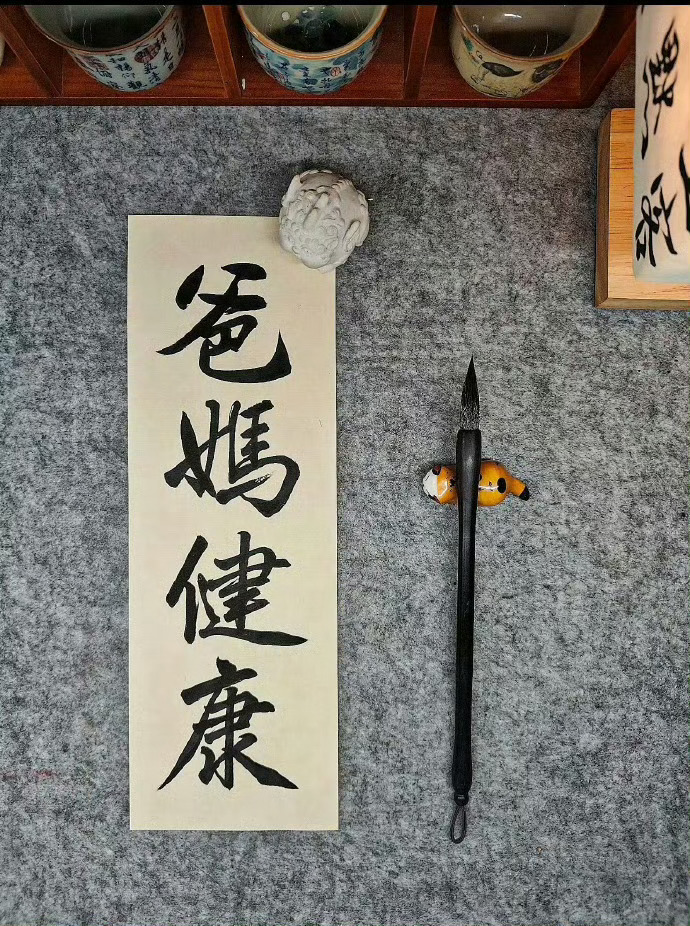 爸媽健康